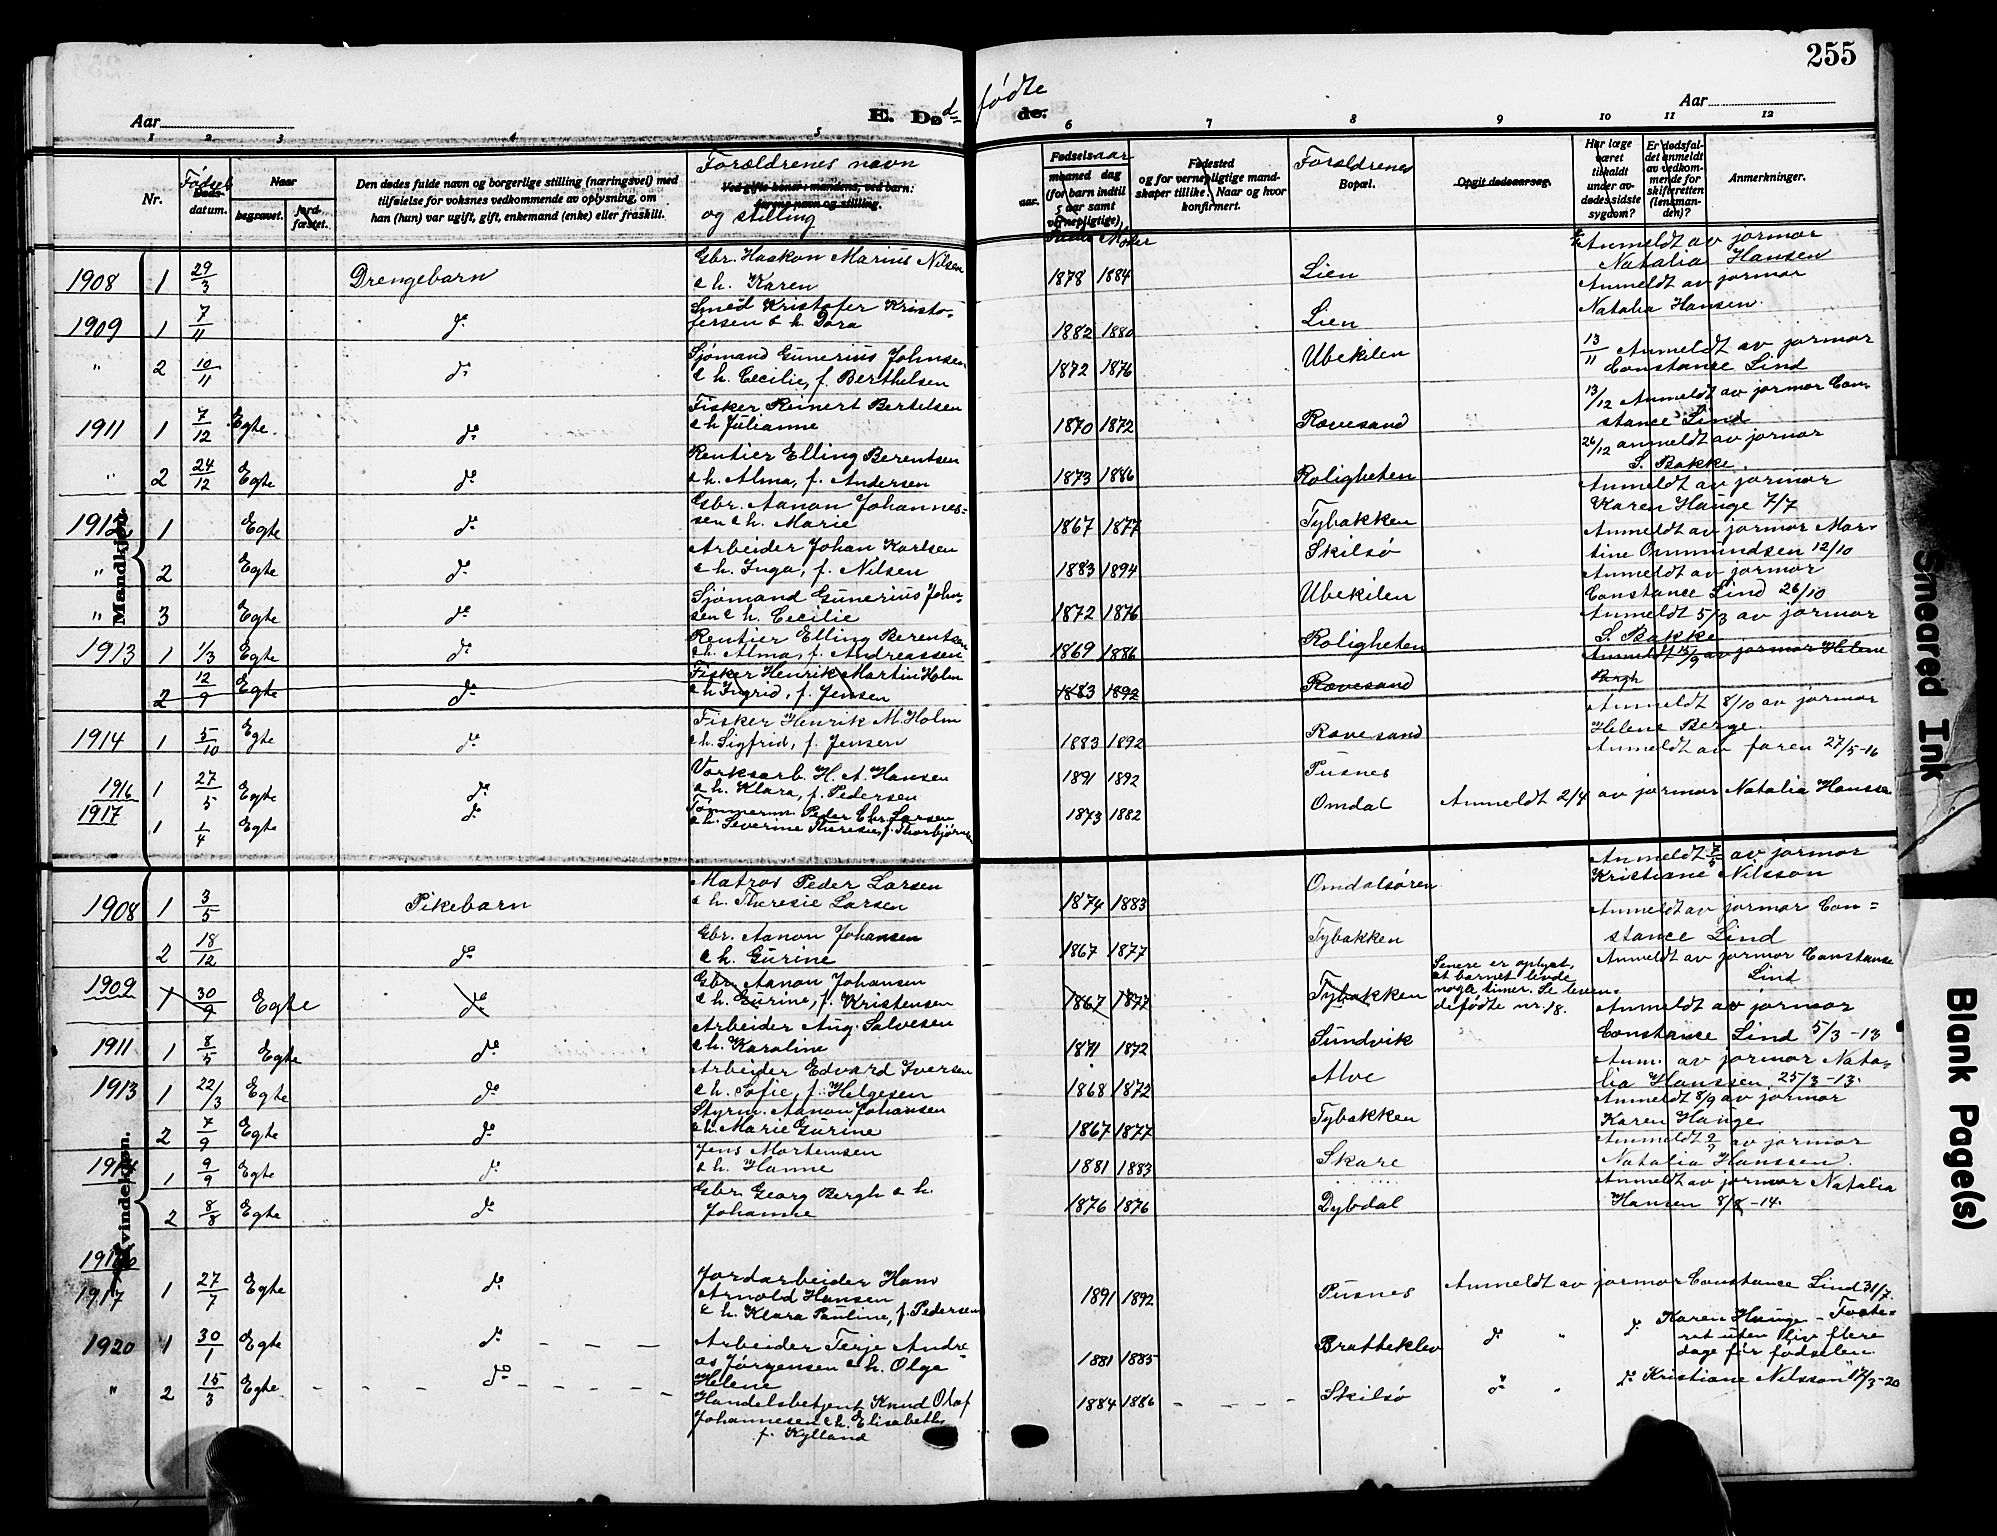 255
Aar
E. Dødfødte
de.
Aar
1 2 3 4 5 6 7 8 9 10 11 12
Nr.
Fødsels
Døds-
datum.
Naar
begravet.
jord-
fæstet.
Den dødes fulde navn og borgerlige stilling (næringsvei) med
tilføielse for voksnes vedkommende av oplysning, om
han (hun) var ugift, gift, enkemand (enke) eller fraskilt.
Forældrenes navn
Ved gifte koner: mandens, ved barn:
farens navn og stilling.
og stilling
Fødselsaar
maaned dag
(for barn indtil
5 aar samt
vernepligtige),
aar.
Fader Moder
Fødested
og for vernepligtige mand-
skaper tillike: Naar og hvor
konfirmert.
Forældrenes
Bopæl.
Opgit dødsaarsag.
Har læge
været
tilkaldt
under av-
dødes sidste
sygdom?
Er dødsfal-
det anmeldt
av vedkom-
mende for
skifteretten
(lensman-
den)?
Anmerkninger.
Mandkjøn.
1908 1 29/3 Drengebarn Gbr. Haakon Marius Nilsen
& h. Karen 1878 1884 Lien Anmeldt av jormor
Natalia Hansen
1909 1 7/11 do Smed Kristofer Kristo-
fersen & h. Dora 1882 1880 Lien Anmeldt av jormor
Natalia Hansen.
" 2 10/11 do Sjømand Gunerius Johnsen
& h. Cecilie, f. Berthelsen 1872 1876 Ubekilen 13/11 Anmeldt av jormor
Constanse Lind
1911 1 7/12 Egte. do Fisker Reinert Bertelsen
& h Julianne 1870 1872 Rævesand 13/12 Anmeldt av jormor Con-
stance Lind
" 2 24/12 Egte do Rentier Elling Berentsen
& h. Alma, f. Andersen 1873 1886 Roligheten 26/12 anmeldt av jormor
S. Bakke.
1912 1 Egte do Gbr. Aanon Johannes-
sen & h. Marie 1867 1877 Tybakken Anmeldt av jormor
Karen Hauge 7/7
" 2 Egte do Arbeider Johan Karlsen
& h. Inga, f. Nilsen 1883 1894 Skilsø Anmeldt av jormor Mar-
tine Ommundsen 12/10
" 3 Egte do Sjømand Gunerius John-
sen & h. Cecilie 1872 1876 Ubekilen Anmeldt av jormor
Constance Lind 26/10
1913 1 1/3 Egte do Rentier Elling Berentsen
& h. Alma, f. Andreassen 1869 1886 Roligheten Anmeldt 5/3 av jormor
S. Bakke
2 12/9 Egte do Fisker Henrik Martin Holm
& h Ingrid, f. Jensen 1883 1892 Rævesand Anmeldt 15/9 av jormor Helene
Bergh
1914 1 5/10 Egte do Fisker Henrik M. Holm
& h. Sigfrid, f. Jensen 1883 1892 Rævesand Anmeldt 8/10 av jormor
Helene Berge.
1916 1 27/5 Egte do Verksarb. H. A. Hansen
& h. Klara, f. Pedersen 1891 1892 Pusnes Anmeldt av faren 27/5-16
1917 1 1/4 Egte do Tømmerm. Peder Chr. Larsen
& h. Severine Theresie, f. Thorbjørn 1873 1882 Omdal Anmeldt 2/4 av jormor Natalia Hanssen
Kvindekjøn.
1908 1 3/5 Pikebarn Matros Peder Larsen
& h. Theresie Larsen 1874 1883 Omdalsøren Anmeldt 7/5 av jormor
Kristiane Nilsson
2 18/12 do Gbr. Aanon Johansen
& h. Gurine 1867 1877 Tybakken Anmeldt av jormor Con=
stance Lind
1909 1 30/9 Egte do Gbr. Aanon Johansen
& h. Gurine, f. Kristensen 1867 1877 Tybakken Senere er oplyst,
at barnet levde
nogle timer. Se leven-
defødte nr. 18. Anmeldt av jormor Constanse
Lind
1911 1 8/5 Egte do Arbeider Aug. Salvesen
& h. Karoline 1871 1872 Sundvik Anmeldt av jormor
Constanse Lind 5/3-13
1913 1 22/3 Egte do Arbeider Edvard Iversen
& h. Sofie, f. Helgesen 1868 1872 Alve Anm. av jormor Nata-
lia Hanssen, 25/3-13.
2 7/9 Egte do Styrm. Aanon Johansen
& h. Marie Gurine 1867 1877 Tybakken Anmeldt 8/9 av jormor
Karen Hauge
1914 1 9/9 Egte do Jens Mortensen
& h. Hanne 1881 1883 Skare Anmeldt 9/9 av jormor
Natalia Hanssen.
2 8/8 Egte do Gbr. Georg Bergh & h.
Johanne 1876 1876 Dybdal Anmeldt av jormor Natalia
Hansen 8/8-14.
1916
1917 1 27/7 Egte do Jordarbeider Hans
Arnold Hansen
& h. Klara Pauline, f. Pedersen 1891 1892 Pusnes Anmeldt av jormor Constance Lind 31/7.
1920 1 30/1 Egte do Arbeider Terje Andre
as Jørgensen & h. Olga
Helene 1881 1885 Bratteklev do " do Karen Hauge - Foste-
ret uten liv flere
dage før fødselen.
" 2 15/3 Egte do Handelsbetjent Knud Olaf
Johannesen & h. Elisabeth
f. Kylland 1884 1886 Skilsø do " do Kristiane Nilsson 17/3-20
Smeared Ink
Blank Page(s)